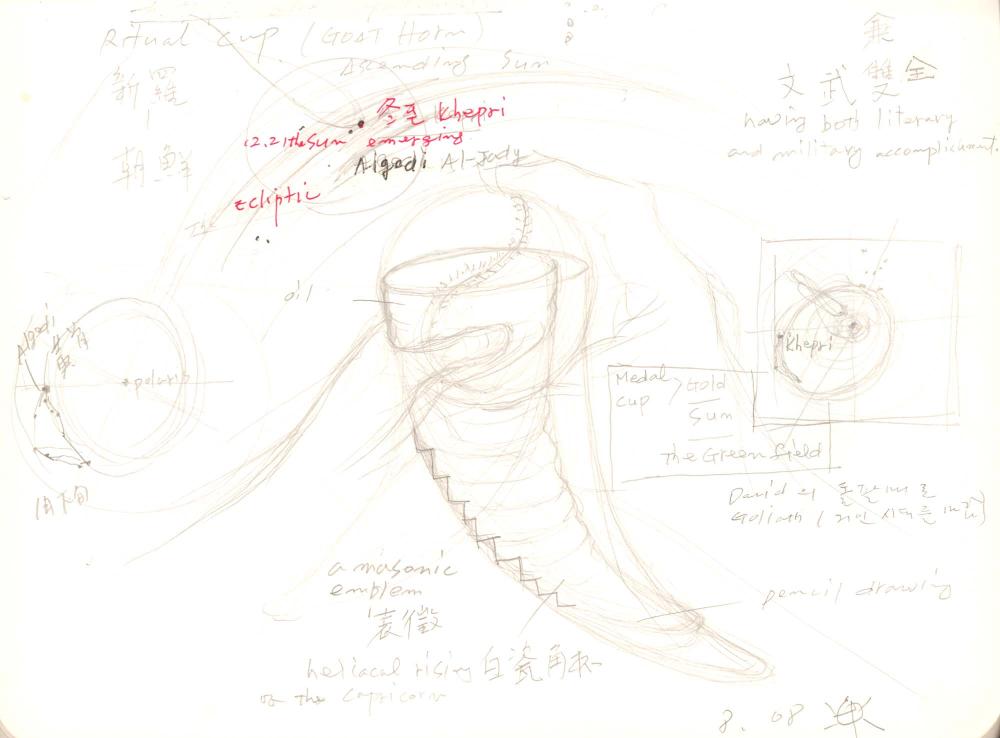 Ritual cup (GOAT Horn)
Ascending Sun
新羅
朝鮮
冬至 Khepri
12.21 the Sun emerging
Algedi Al-Jady
ecliptic
文武雙全
having both literary
and military accomplishment.
oil
Algedi
polaris
Khepri
Medal
cup
Gold
Sun
the Green field
David의 돌팔매로
Goliath
a masonic
emblem
表徵
heliacal rising
of the Capricorn
白瓷角杯
pencil drawing
8. 08